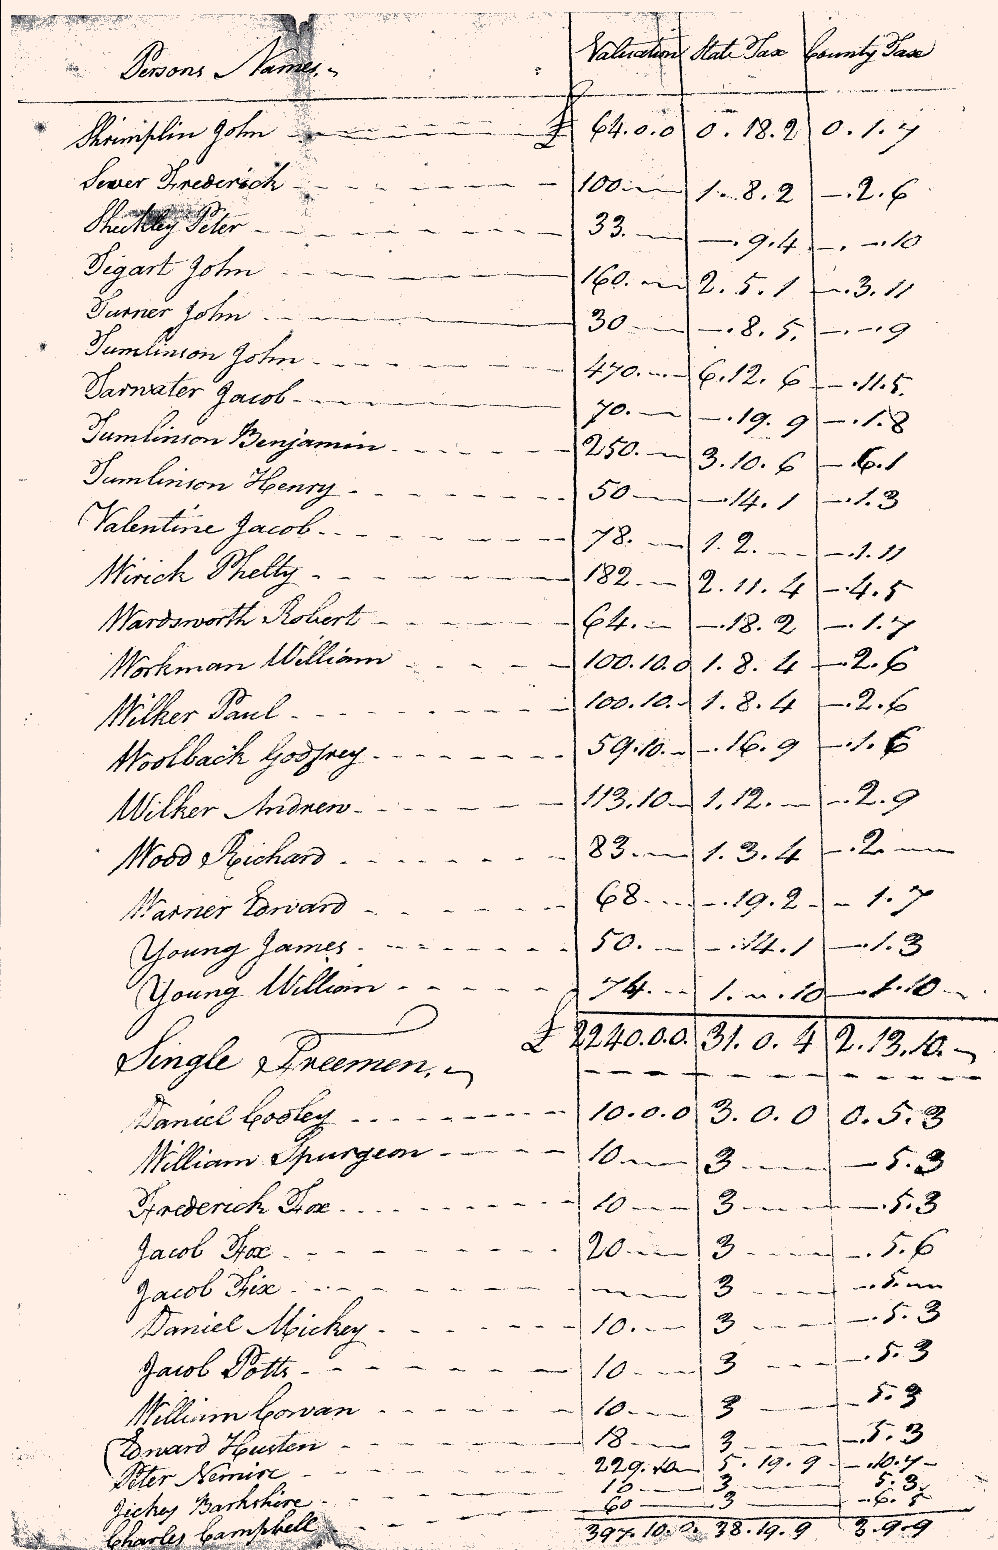 Persons Names Valuation State Tax County Tax
Shrimplin John £ 64.0.0 0.18.2 0.1.7
Sewer Frederick 100 1.8.2 2.6
Sheckley Peter 33 9.4 10
Tigart John 160 2.5.1 3.11
Turner John 30 8.5 9
Tumlinson John 470 6.12.6 11.5
Tarwater Jacob 70 19.9 1.8
Tumlinson Benjamin 250 3.10.6 6.1
Tumlinson Henry 50 14.1 1.3
Valentine Jacob 78 1.2 1.11
Wirick Phelty 182 2.11.4 4.5
Wardsworth Robert 64 18.2 1.7
Workman William 100.10.0 1.8.4 2.6
Wilker Paul 100.10 1.8.4 2.6
Woolback Godfrey 59.10 16.9 1.6
Wilker Andrew 113.10 1.12 2.9
Wood Richard 83 1.3.4 2
Warner Edward 68 19.2 1.7
Young James 50 14.1 1.3
Young William 74 1.10 1.10
£ 2240.0.0 31.0.4 2.13.10
Single Freemen
Daniel Cooley 10.0.0 3.0.0 0.5.3
William Spurgeon 10 3 5.3
Frederick Fox 10 3 5.3
Jacob Fox 20 3 5.6
Jacob Fix 3 5
Daniel Mickey 10 3 5.3
Jacob Potts 10 3 5.3
William Cowan 10 3 5.3
Edward Husten 18 3 5.3
Peter Nemire 229.10 5.19.9 10.7
Jickey Barkshire 10 3 5.3
Charles Campbell 60 3 6.5
397.10.0 38.19.9 3.9.9